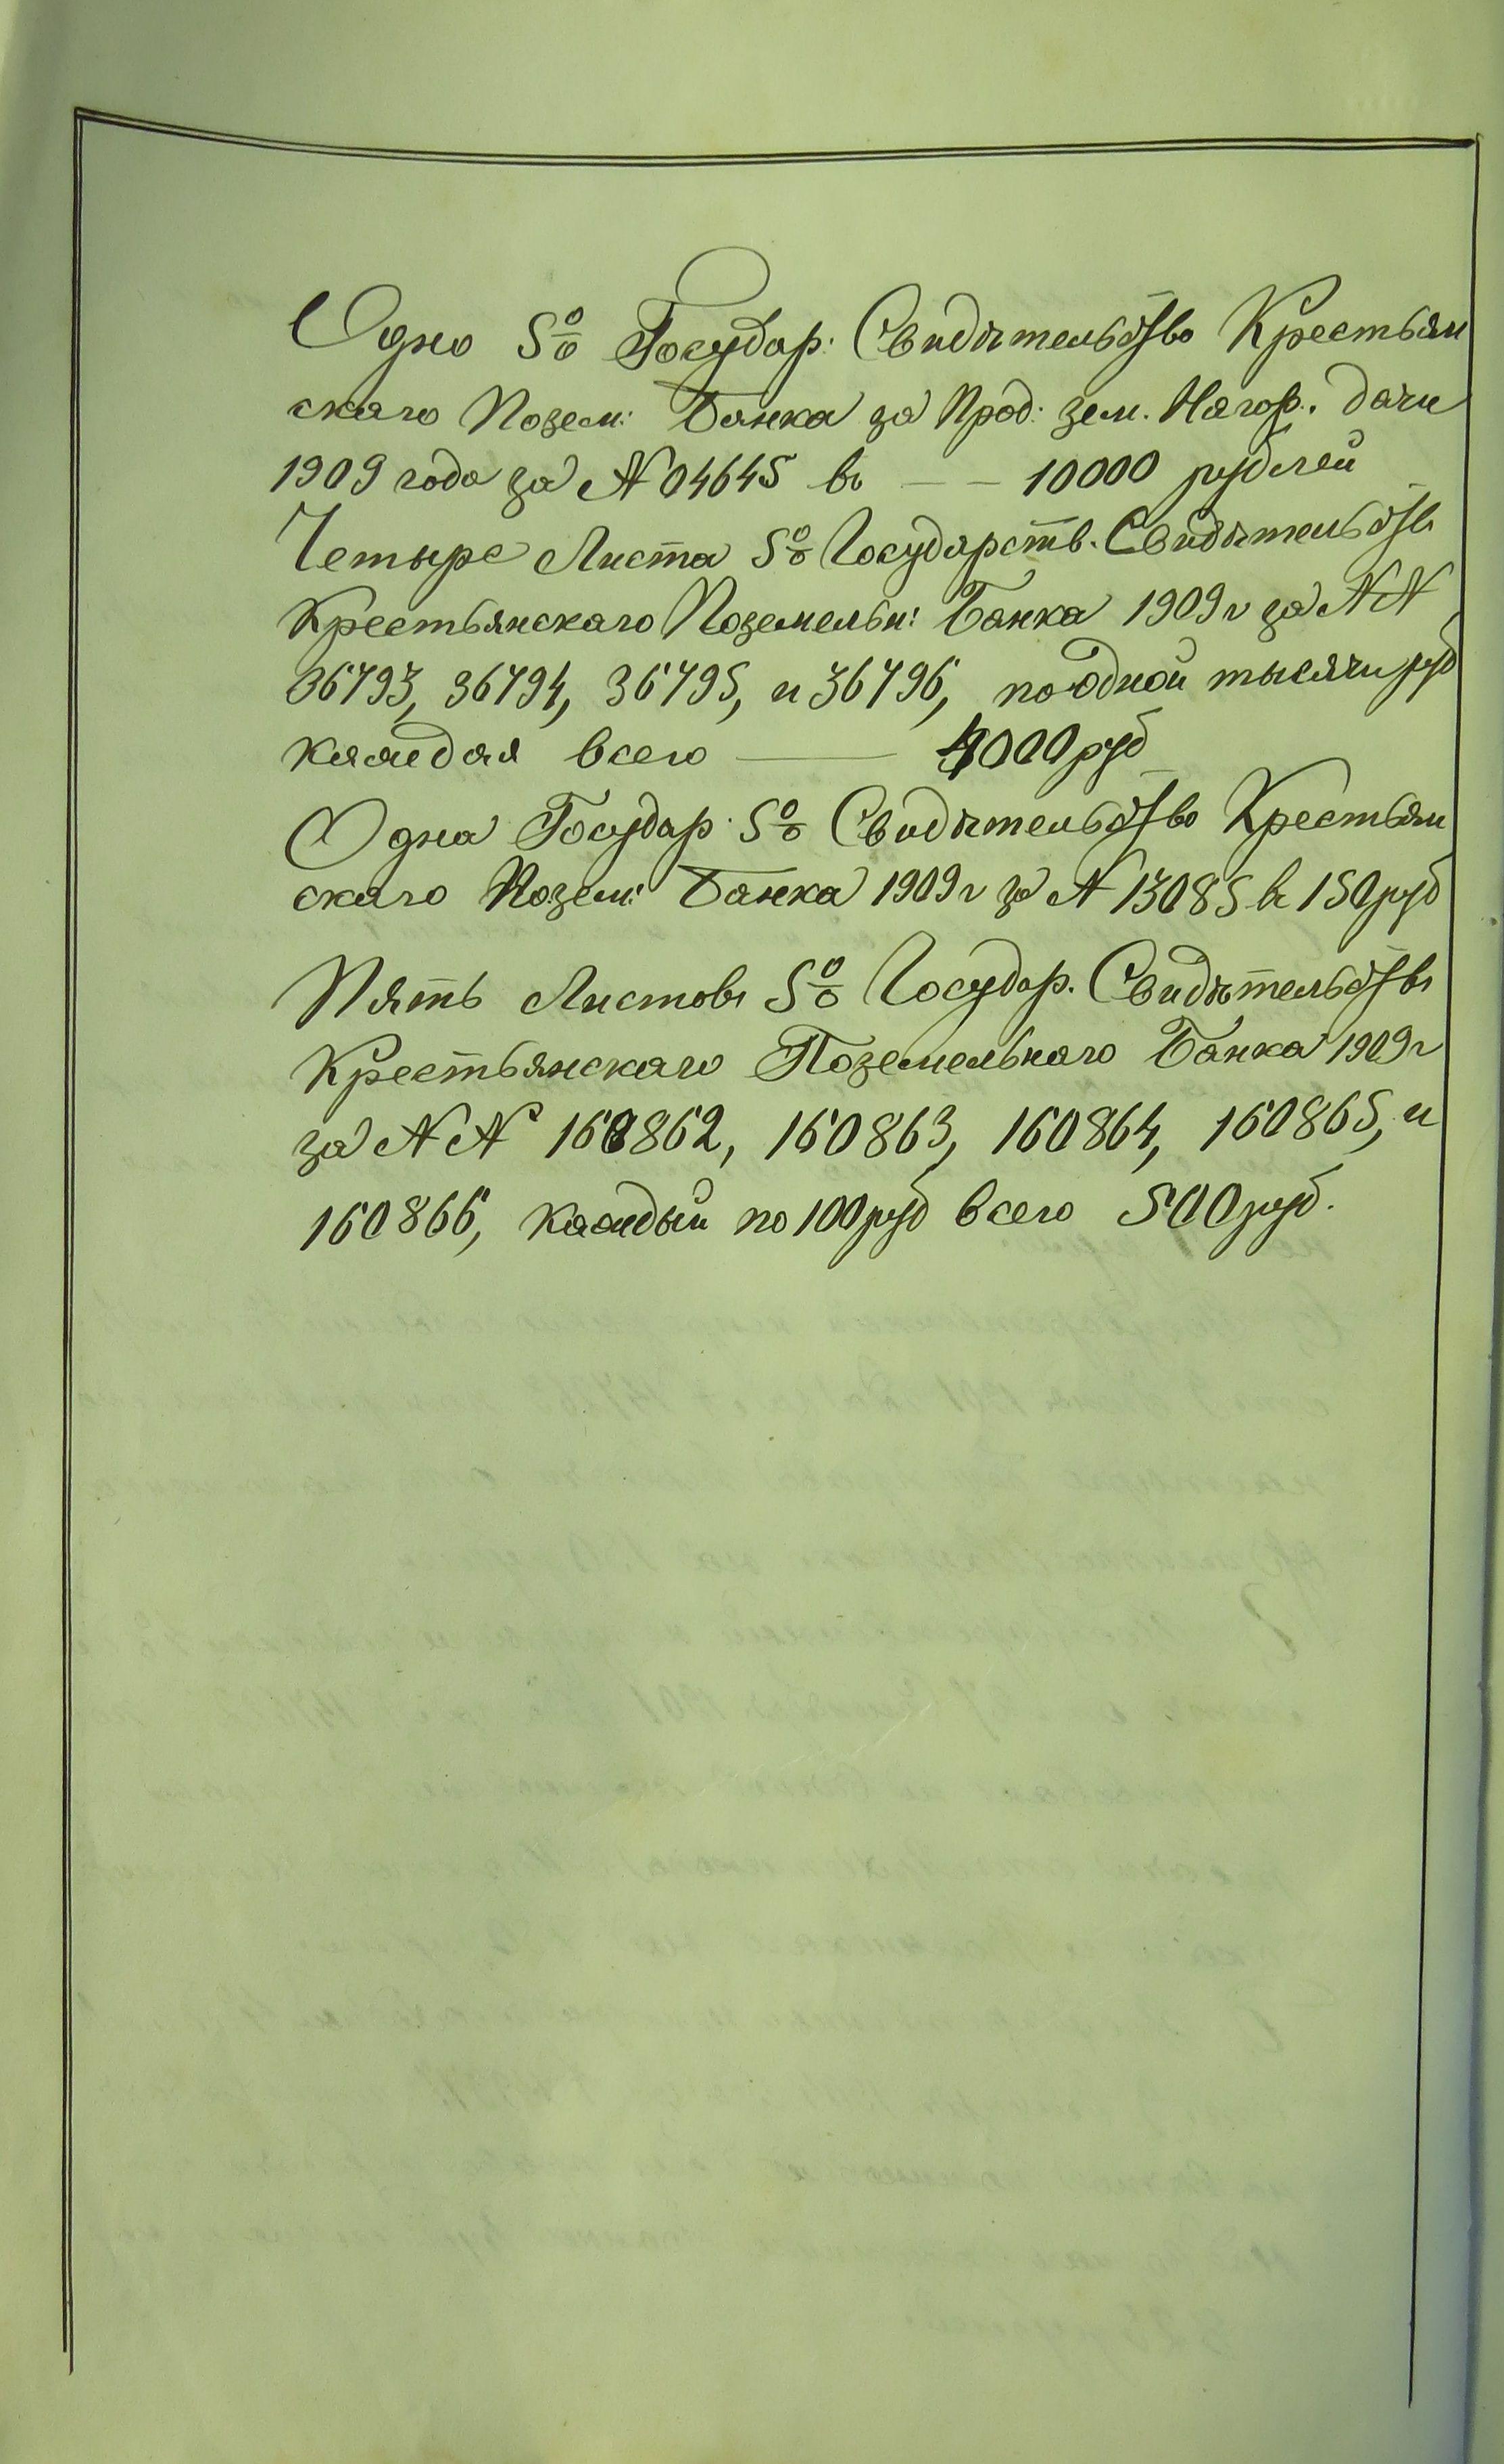 Одно 5% Государ: Свидѣтельство Крестьян
скаго Позем: Банка за Прод: зем. Нагор. дачи
1909 года за № 04645 въ — — 10000 рублей
Четыре Листа 5% Государств. Свидѣтельствъ
Крестьянскаго Поземельн: Банка 1909 г за №№
36793, 36794, 36795, и 36796, по одной тысячи руб
каждая всего — 4000 руб
Одна Государ: 5% Свидѣтельство Крестьян
скаго Позем: Банка 1909 г за № 13085 въ 150 руб
Пять Листовъ 5% Государ. Свидѣтельствъ
Крестьянскаго Поземельнаго Банка 1909 г
за №№ 160862, 160863, 160864, 160865, и
160866, каждый по 100 руб всего 500 руб.